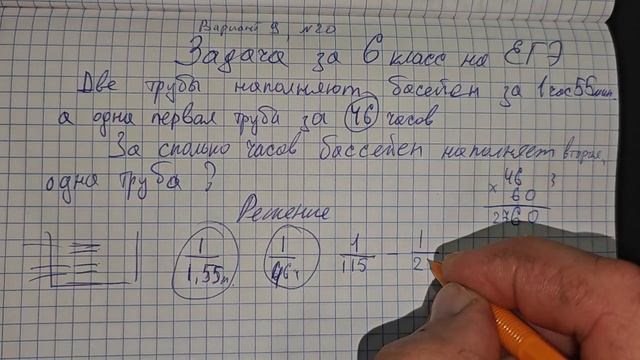 Вариант 9, №20
Задача за 6 класс на ЕГЭ
Две трубы наполняют басебен за 1 час 55 мин.
а одна первая труба за 46 часов
За сколько часов бассебен наполняет вторая,
одна труба?
46
× 60
2760
Решение
1/1,55
1/46ч
1/115 - 1/2